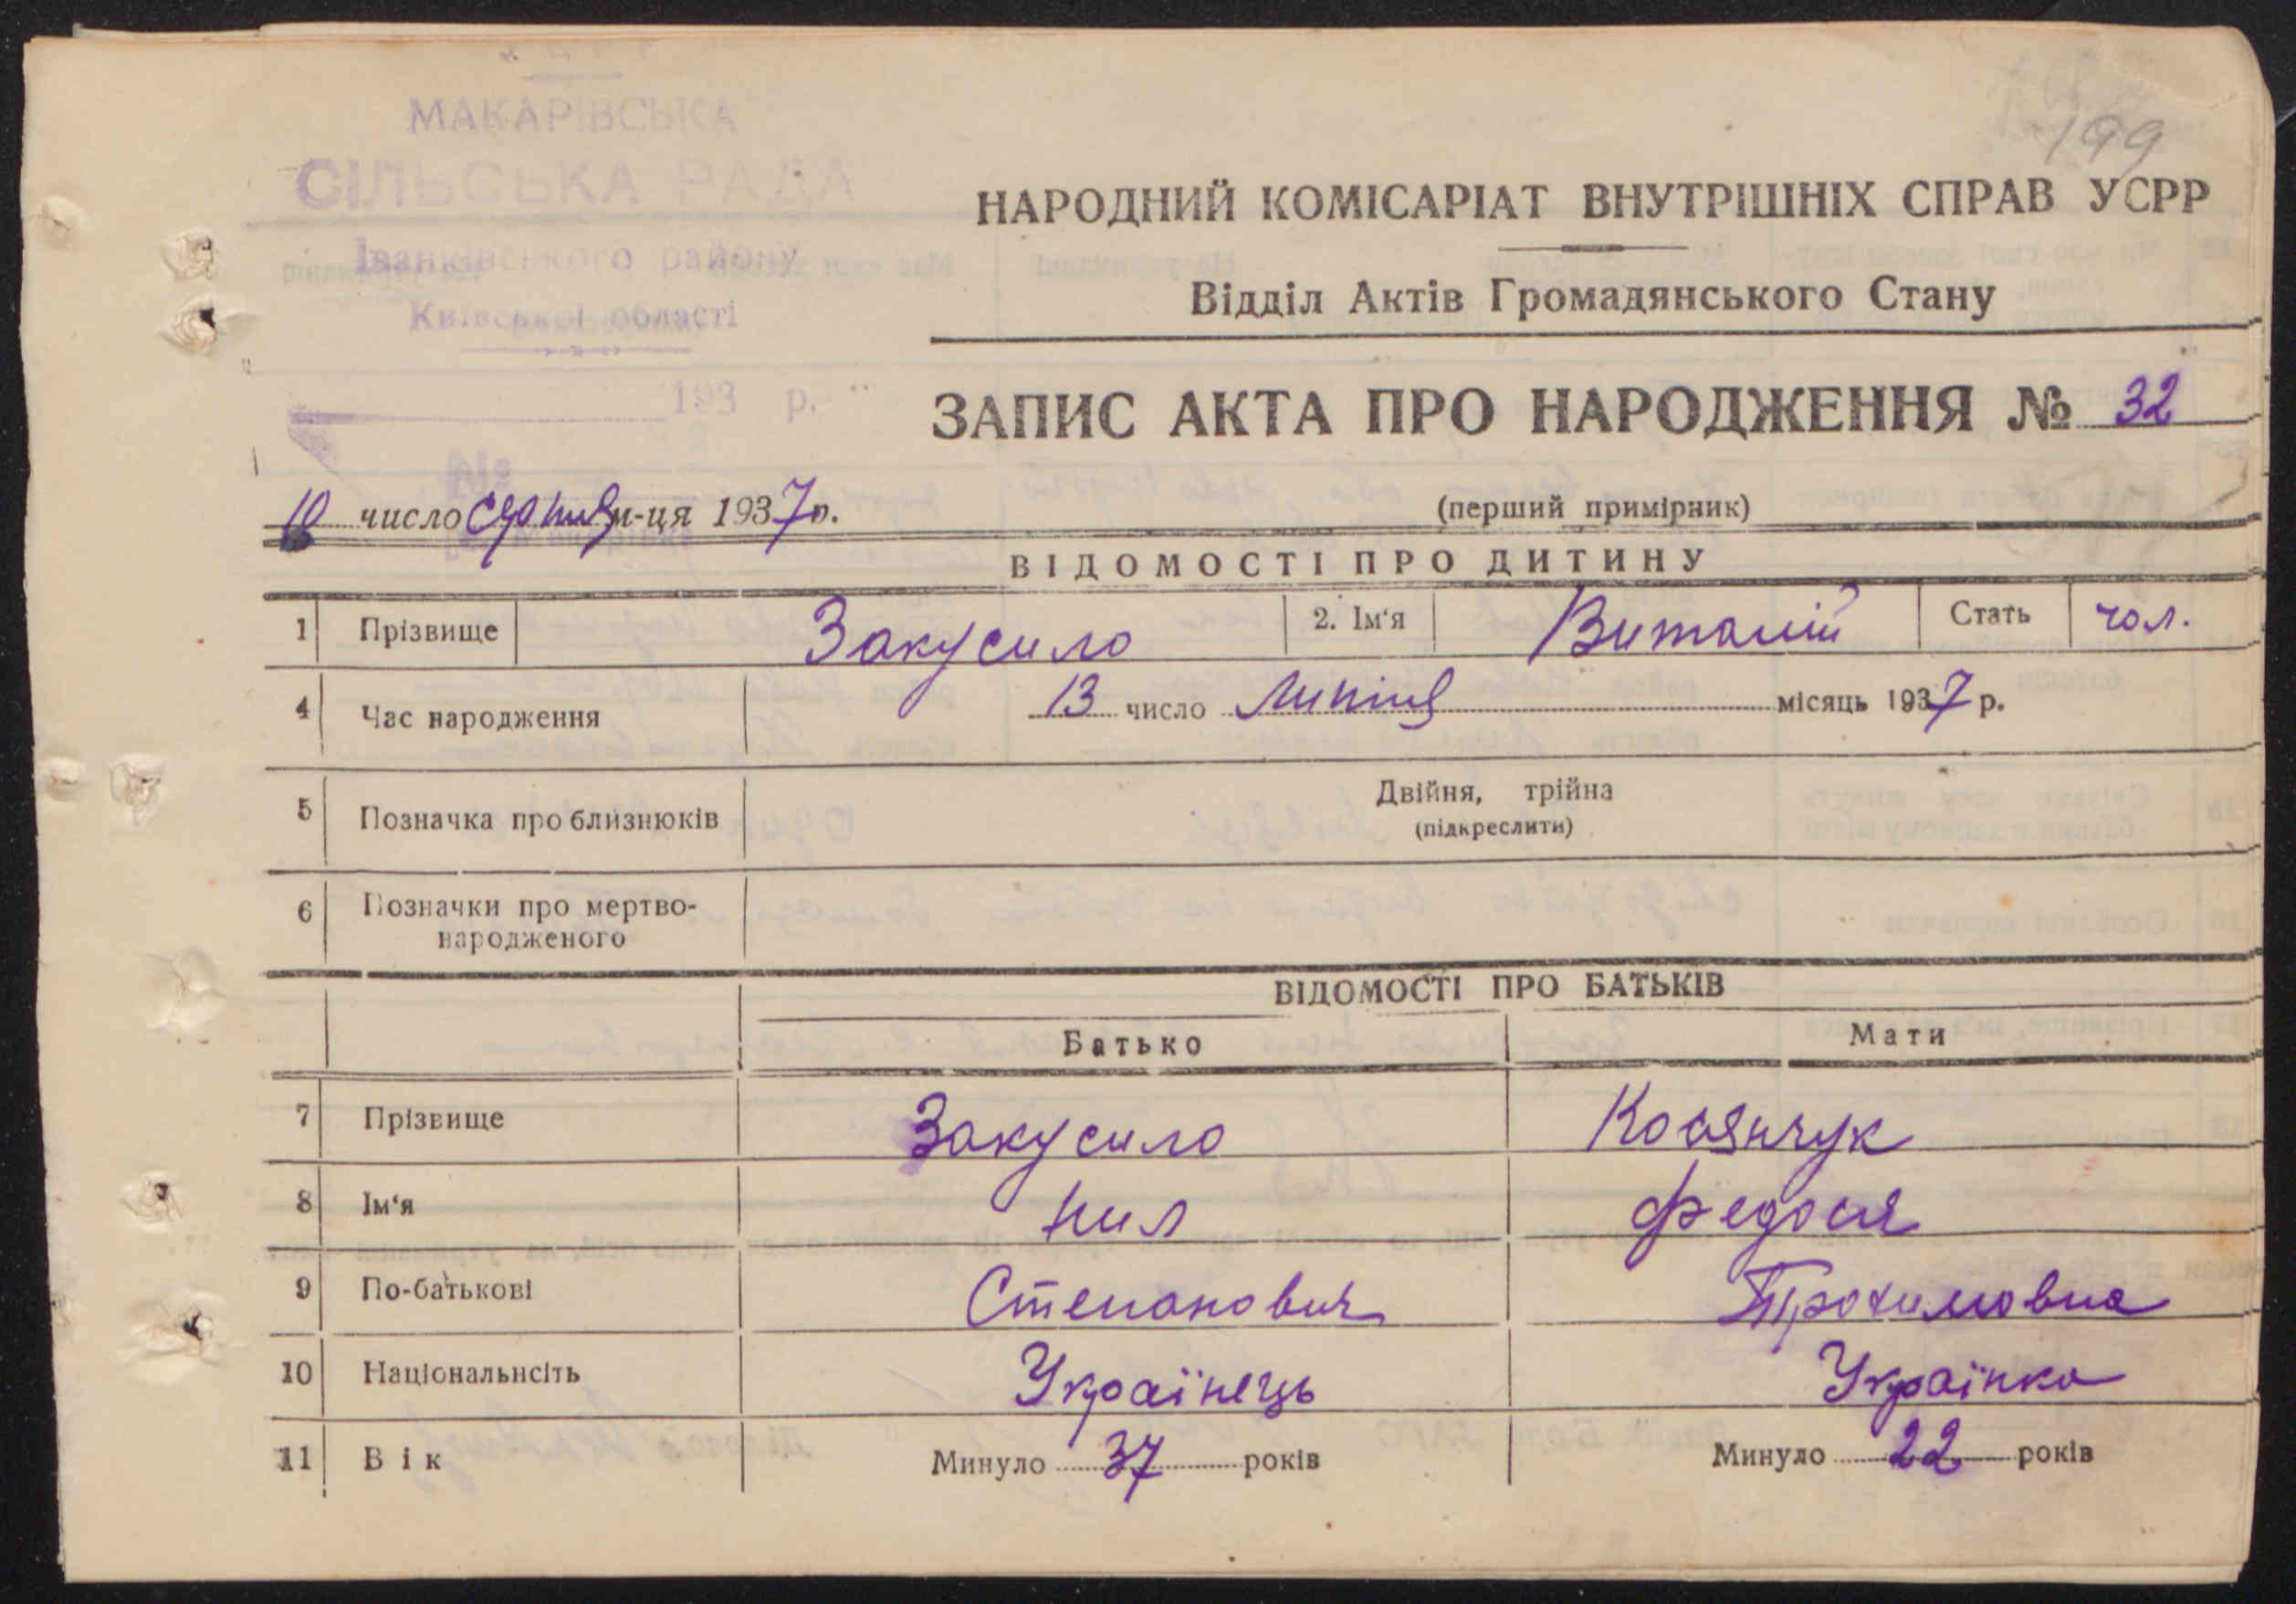 199
МАКАРІВСЬКА
СІЛЬСЬКА РАДА
Іванківського району
Київської області
193 р.
№
НАРОДНИЙ КОМІСАРІАТ ВНУТРІШНІХ СПРАВ УСРР
Відділ Актів Громадянського Стану
ЗАПИС АКТА ПРО НАРОДЖЕННЯ № 32
10 число серпня м-ця 1937 р.
(перший примірник)
ВІДОМОСТІ ПРО ДИТИНУ
1 Прізвище Закусило 2. Ім'я Виталій Стать чол.
4 Час народження 13 число Липня місяць 1937 р.
5 Позначка про близнюків Двійня, трійна
(підкреслити)
6 Позначки про мертво-
народженого
ВІДОМОСТІ ПРО БАТЬКІВ
Батько Мати
7 Прізвище Закусило Косянчук
8 Ім'я Нил Федося
9 По-батькові Степанович Трохимовна
10 Національнсіть Українець Українка
11 Вік Минуло 37 років Минуло 22 років